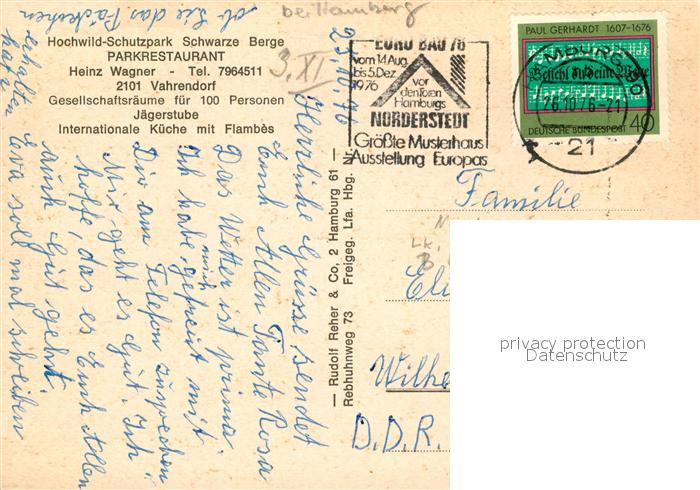 bei Hamburg
Hochwild-Schutzpark Schwarze Berge
PARKRESTAURANT
Heinz Wagner - Tel. 7964511
2101 Vahrendorf
Gesellschaftsräume für 100 Personen
Jägerstube
Internationale Küche mit Flambès
3. XI
25.10.76
Herrliche Grüsse sendet
Euch Allen Tante Rosa
Das Wetter ist prima.
Ich habe mich gefreut mit
Dir am Telefon zusprechen
Mir geht es Gut. Ich
hoffe, das es Euch Allen
auch Gut geht.
Eva soll mal schreiben
ob Sie das Päckchen
erhalten
hat.
— Rudolf Reher & Co, 2 Hamburg 61 —
Rebhuhnweg 73 Freigeg. Lfa. Hbg. Nr.
EURO BAU 76
vom 14. Aug.
bis 5. Dez.
1976
vor
den Toren
Hamburgs
NORDERSTEDT
Größte Musterhaus
Ausstellung Europas
PAUL GERHARDT 1607–1676
Befiehl du deine Wege
DEUTSCHE BUNDESPOST 40
26.10.76-21
21
Familie
Lk.
Wilhe
D.D.R.
privacy protection
Datenschutz